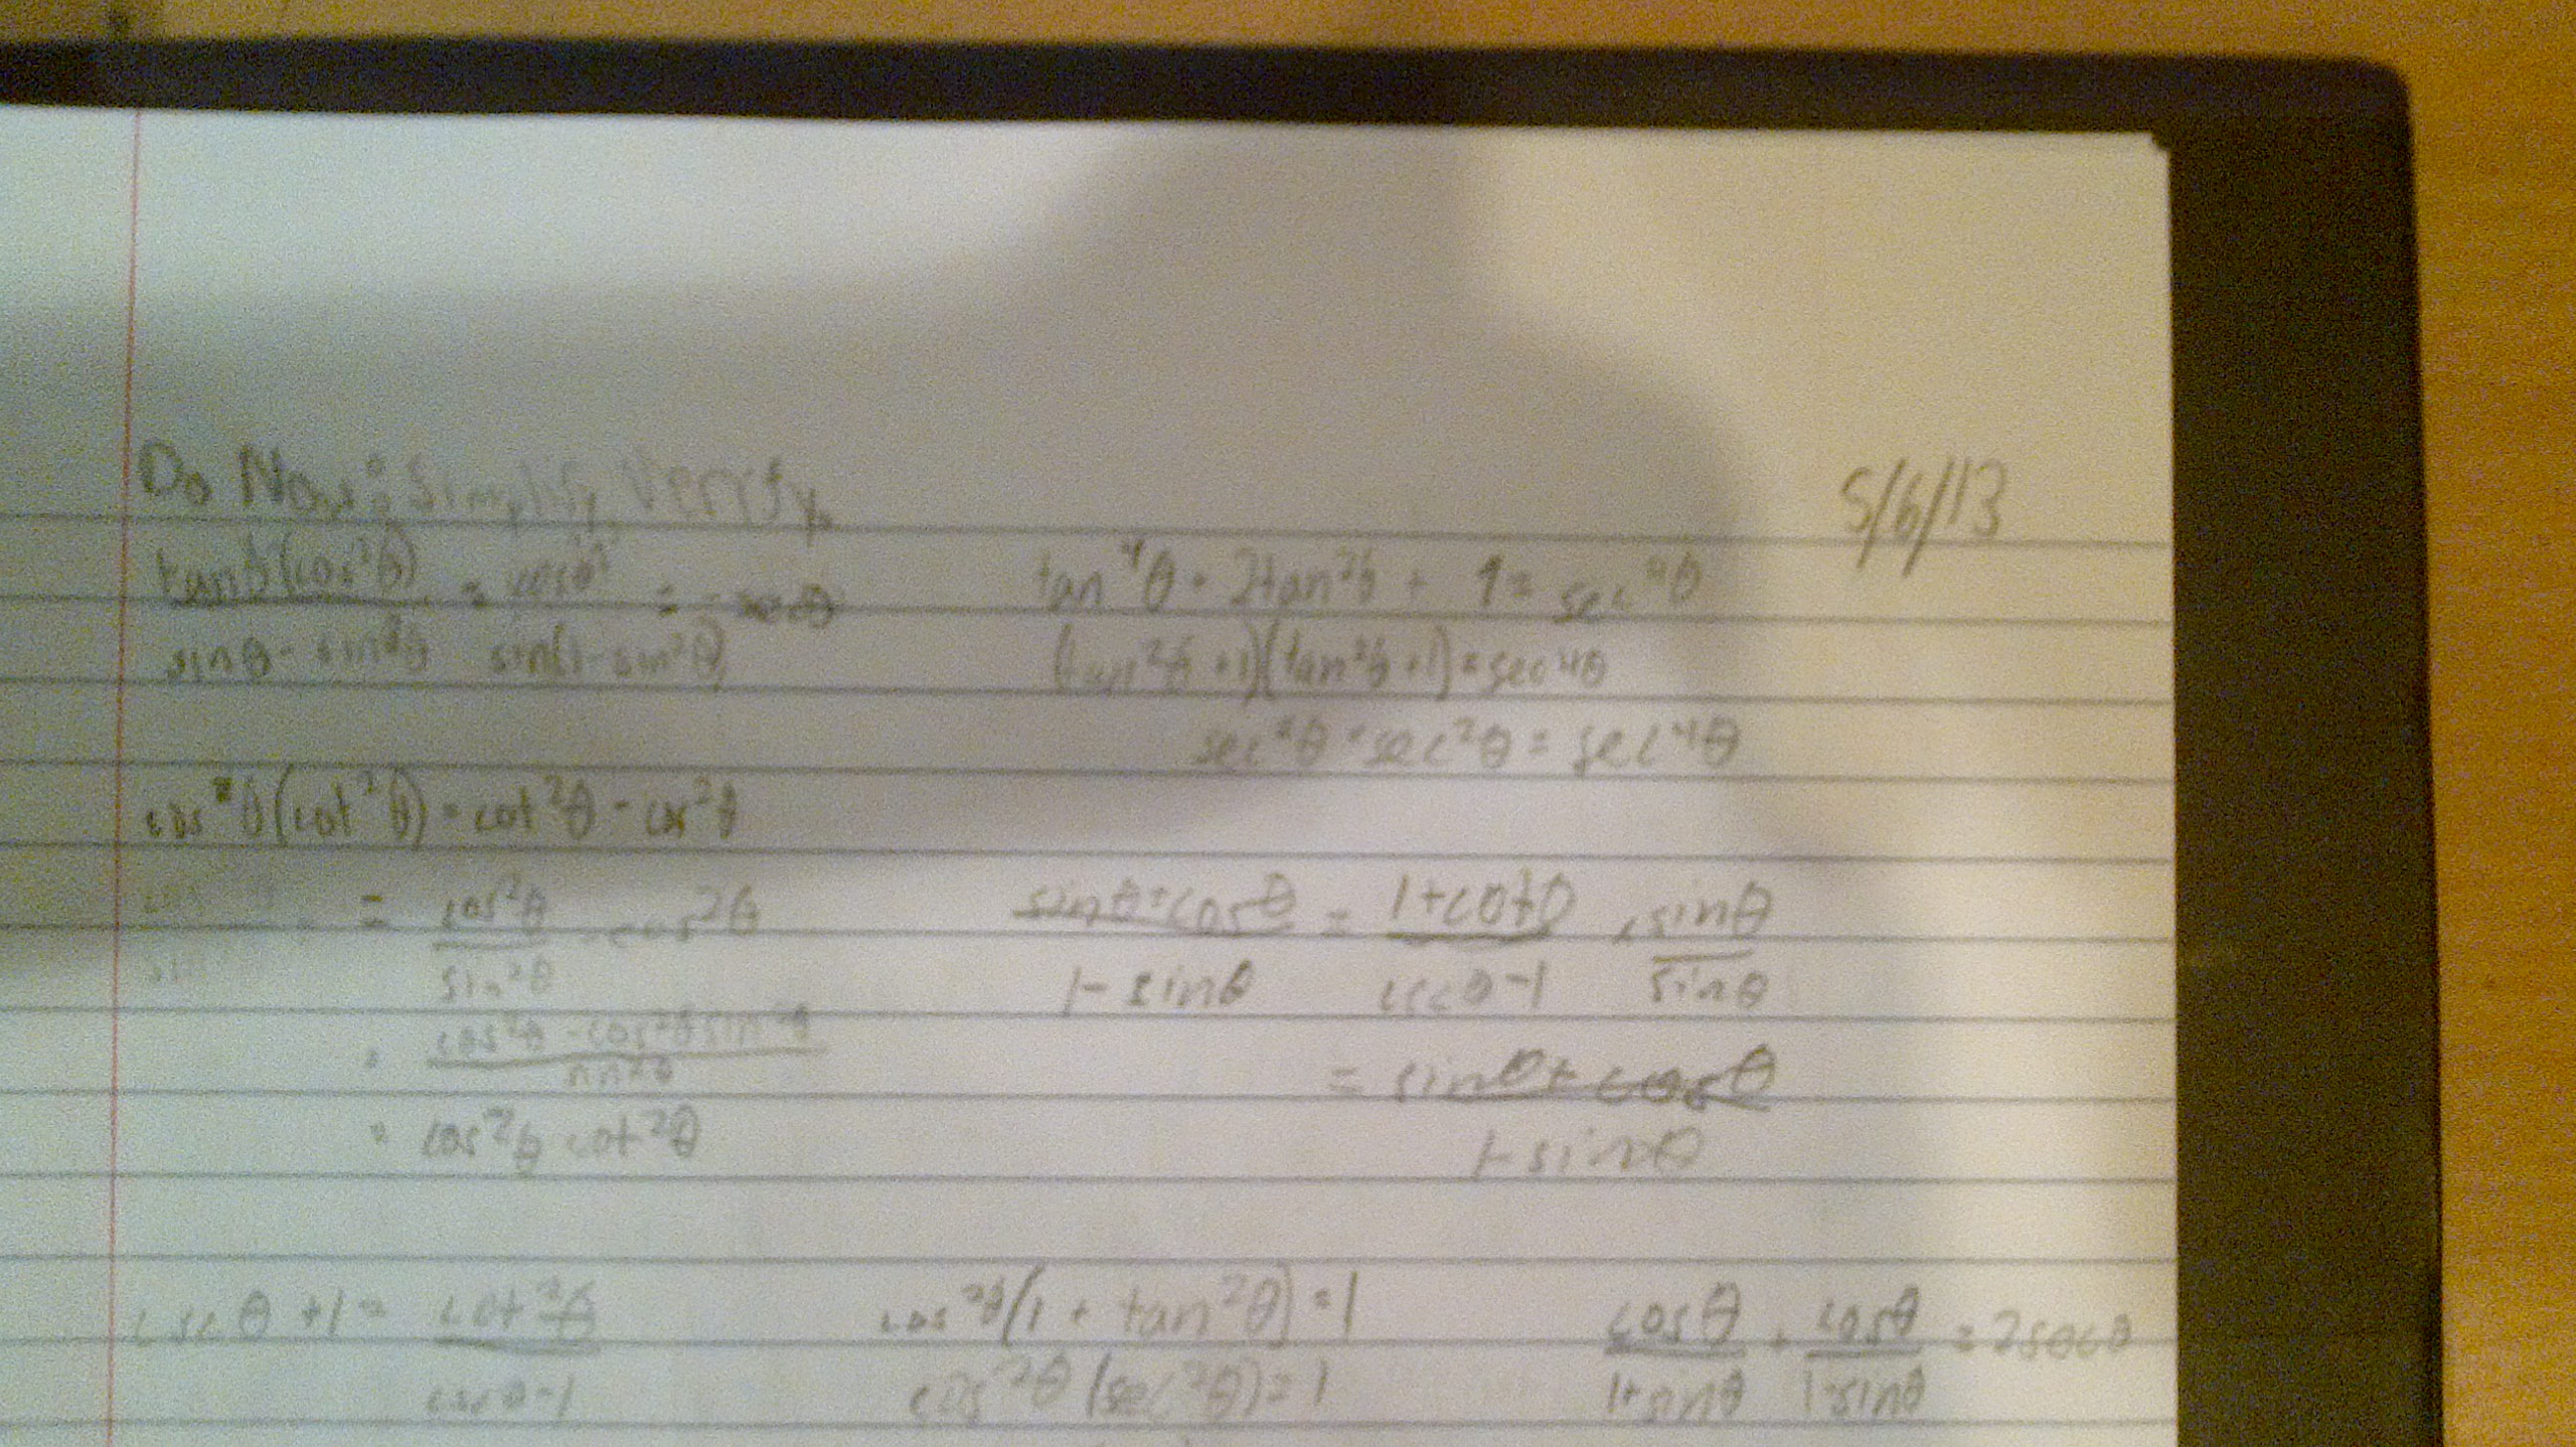 Do Now: Simplify, Verify.
5/6/13
tanθ(cos²θ) = cosθ = secθ
sinθ - sin³θ sin(1-sin²θ)
tan⁴θ + 2tan²θ + 1 = sec⁴θ
(tan²θ +1)(tan²θ +1) = sec⁴θ
sec²θ · sec²θ = sec⁴θ
cos²θ(cot²θ) = cot²θ - cos²θ
= cos²θ - cos²θ
sin²θ
= cos²θ - cos²θ sin²θ
sin²θ
= cos²θ cot²θ
sinθ+cosθ = 1+cotθ · sinθ
1-sinθ cscθ-1 sinθ
= sinθ+cosθ
1-sinθ
cscθ +1 = cot²θ
cscθ-1
cos²θ(1 + tan²θ) = 1
cos²θ(sec²θ) = 1
cosθ + cosθ = 2secθ
1+sinθ 1-sinθ